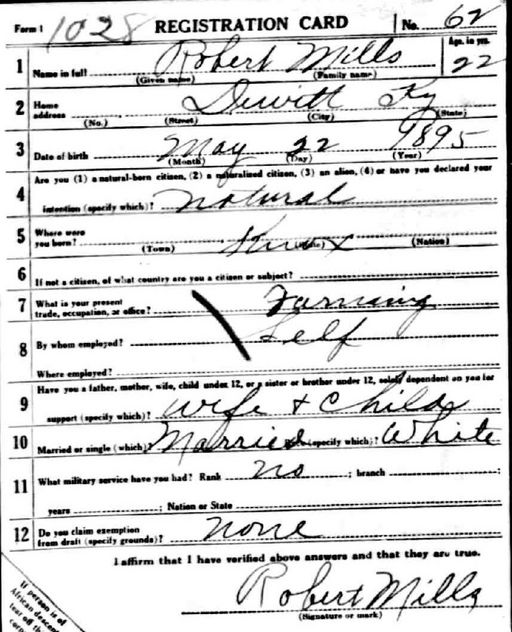 Form 1 1028 REGISTRATION CARD No. 62
1 Name in full Robert Mills Age, in yrs. 22
(Given name) (Family name)
2 Home address Dewitt Ky
(No.) (Street) (City) (State)
3 Date of birth May 22 1895
(Month) (Day) (Year)
4 Are you (1) a natural-born citizen, (2) a naturalized citizen, (3) an alien, (4) or have you declared your
intention (specify which)? natural
5 Where were you born? Knox
(Town) (State) (Nation)
6 If not a citizen, of what country are you a citizen or subject?
7 What is your present trade, occupation, or office? Farming
8 By whom employed? Self
Where employed?
9 Have you a father, mother, wife, child under 12, or a sister or brother under 12, solely dependent on you for
support (specify which)? wife + child
10 Married or single (which)? Married Race (specify which)? White
11 What military service have you had? Rank no ; branch ;
years ; Nation or State
12 Do you claim exemption from draft (specify grounds)? none
I affirm that I have verified above answers and that they are true.
Robert Mills
(Signature or mark)
If person is of
African descent
tear off